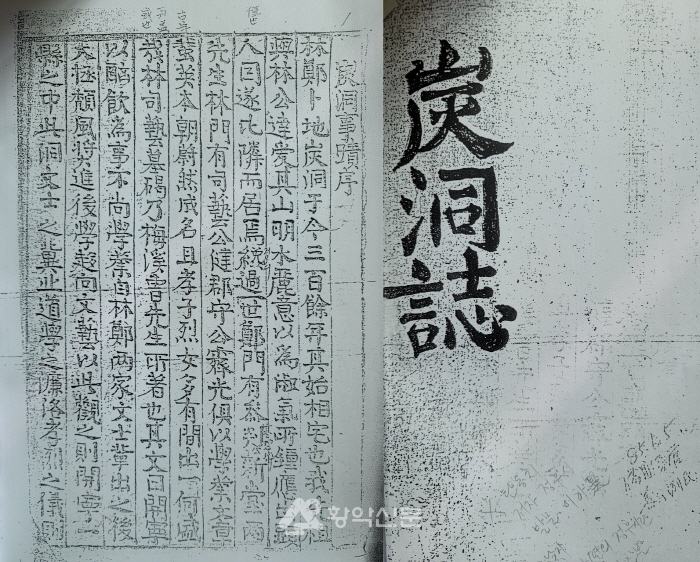 炭洞誌
炭洞事蹟序
林鄭卜地炭洞于今三百餘年其始相宅也我 相
興林公達愛其山明水麗意以為淑氣所鍾應出顯
人因遂比隣而居焉纔過一世鄭門有 新堂兩
先生林門有司藝公健郡守公霖光俱以學業文章
蜚英本朝蔚然成名且孝子烈女多有間出一何盛
哉林司藝墓碣乃梅溪曺先生所著也其文曰開寧
以酗飲為事不尚學業自林鄭兩家文士輩出之後
大極頹風奬進後學趍向文藝以此觀之則開寧一
縣之中此洞文士之冀北道學之濂洛孝烈之儀則
황악신문